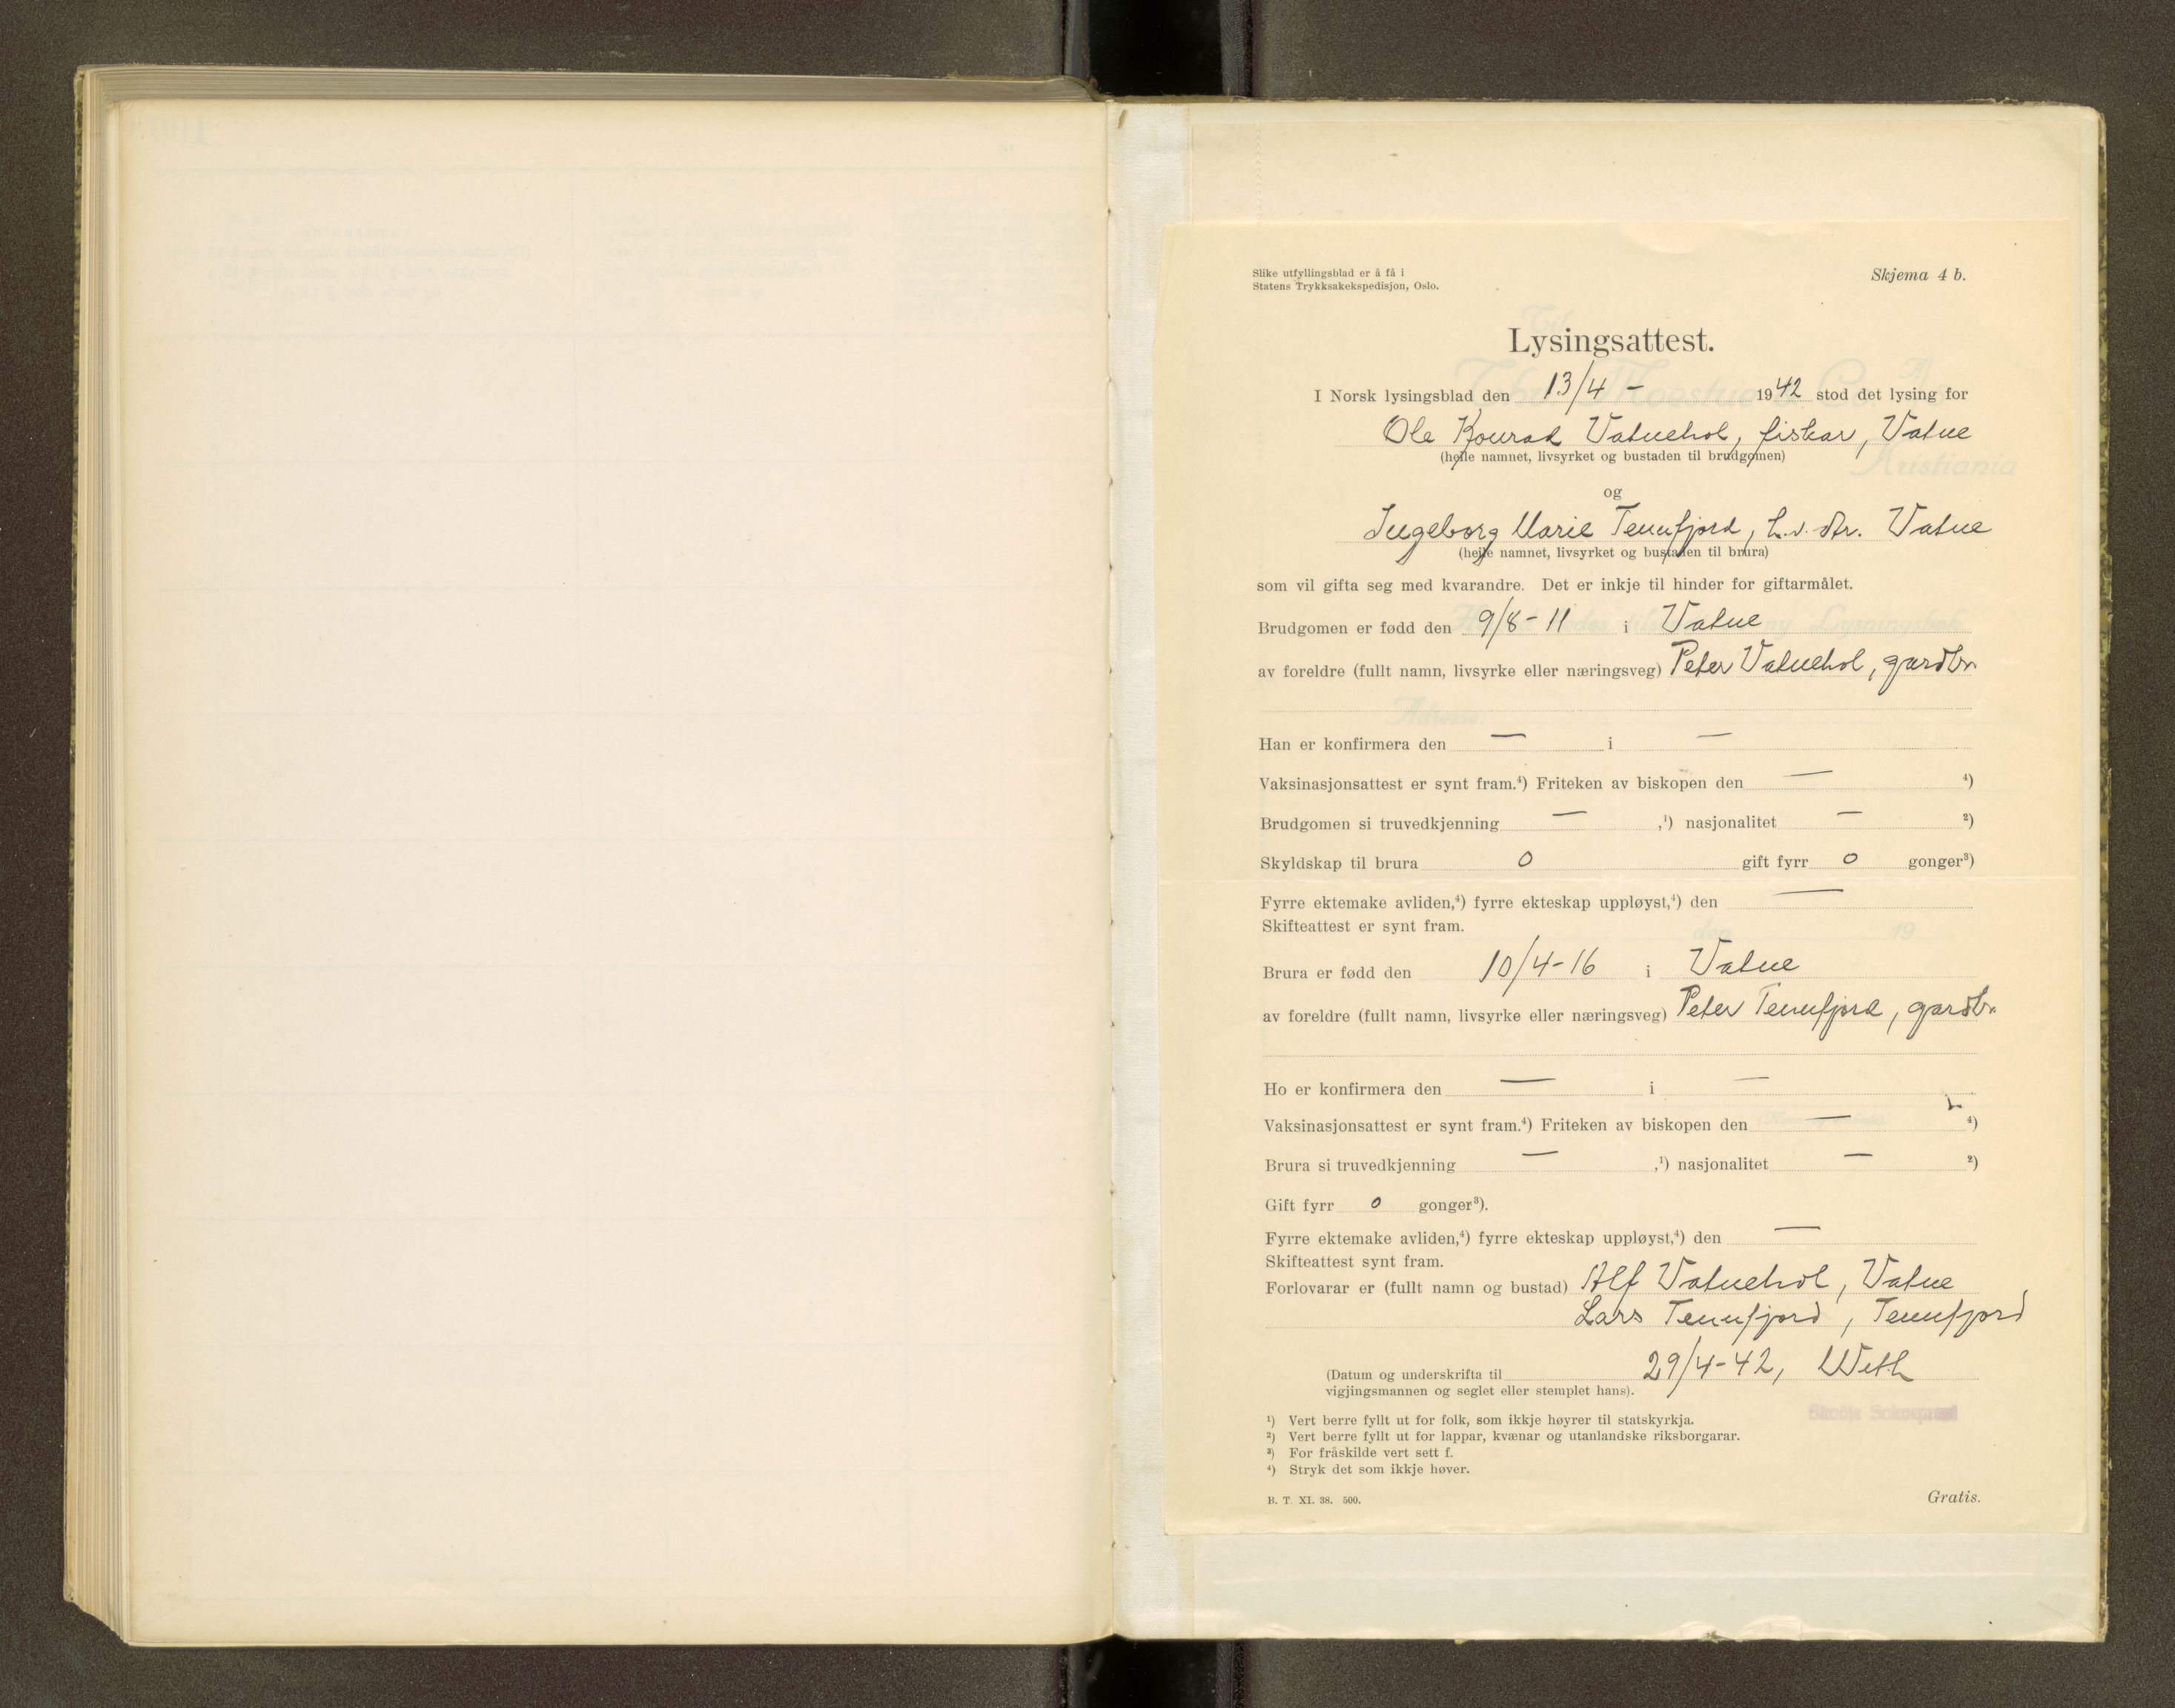 Slike utfyllingsblad er å få i
Statens Trykksakekspedisjon, Oslo.
Skjema 4 b.
Lysingsattest.
I Norsk lysingsblad den 13/4 - 1942 stod det lysing for
Ole Konrad Vatnehol, fiskar, Vatne
(heile namnet, livsyrket og bustaden til brudgomen)
og
Ingeborg Marie Tennfjord, h.v. str. Vatne
(heile namnet, livsyrket og bustaden til brura)
som vil gifta seg med kvarandre. Det er inkje til hinder for giftarmålet.
Brudgomen er fødd den 9/8 - 11 i Vatne
av foreldre (fullt namn, livsyrke eller næringsveg) Peter Vatnehol, gardbr.
Han er konfirmera den — i —
Vaksinasjonsattest er synt fram.⁴) Friteken av biskopen den — ⁴)
Brudgomen si truvedkjenning — ,¹) nasjonalitet — ²)
Skyldskap til brura 0 gift fyrr 0 gonger³)
Fyrre ektemake avliden,⁴) fyrre ekteskap uppløyst,⁴) den —
Skifteattest er synt fram.
Brura er fødd den 10/4-16 i Vatne
av foreldre (fullt namn, livsyrke eller næringsveg) Peter Tennfjord, gardbr.
Ho er konfirmera den — i —
Vaksinasjonsattest er synt fram.⁴) Friteken av biskopen den — ⁴)
Brura si truvedkjenning — ,¹) nasjonalitet — ²)
Gift fyrr 0 gonger³).
Fyrre ektemake avliden,⁴) fyrre ekteskap uppløyst,⁴) den —
Skifteattest synt fram.
Forlovarar er (fullt namn og bustad) Alf Vatnehol, Vatne
Lars Tennfjord, Tennfjord
(Datum og underskrifta til 29/4-42, Weth
vigjingsmannen og seglet eller stemplet hans).
¹) Vert berre fyllt ut for folk, som ikkje høyrer til statskyrkja.
²) Vert berre fyllt ut for lappar, kvænar og utanlandske riksborgarar.
³) For fråskilde vert sett f.
⁴) Stryk det som ikkje høver.
B. T. XI. 38. 500.
Gratis.